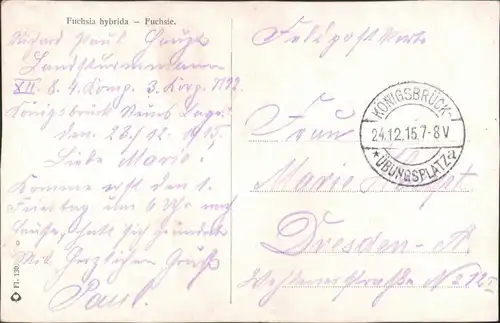 Fuchsia hybrida – Fuchsie.
Richard Paul Haupt
Landsturmmann
XII. 8. 4. Komp. 3. Korp. N22
Königsbrück Neues Lager
den 23/12. 1915.
Liebe Marie!
Komme erst den 1.
Feiertag um 6 Uhr nach
Hause, hatt sich geändert
Mit Herzlichen Gruß
Paul.
Feldpostkarte
KÖNIGSBRÜCK-
24.12.15.7-8V
*ÜBUNGSPLATZ a
Frau
Marie Haupt
Dresden-A
straße No 12